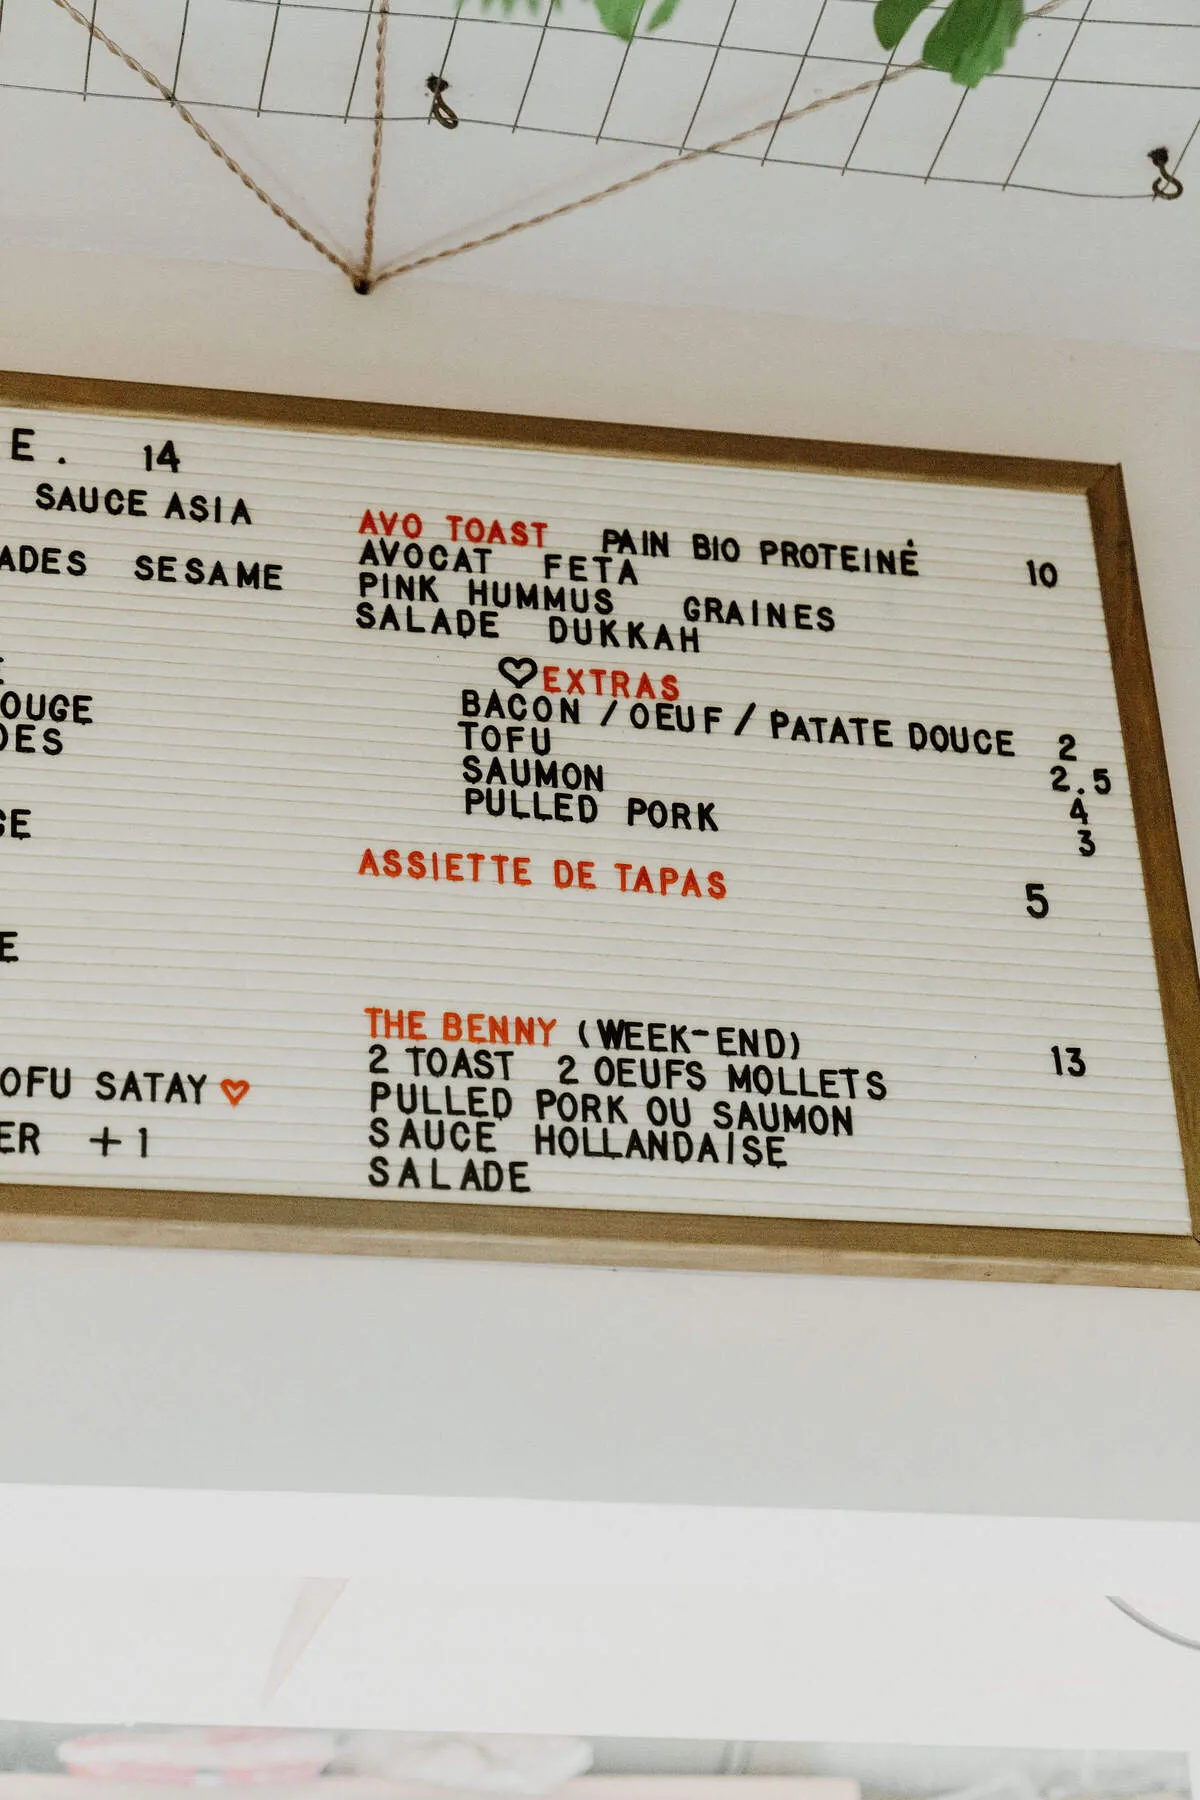 E. 14
SAUCE ASIA
ADES SESAME
OUGE
DES
GE
E
OFU SATAY
ER +1
AVO TOAST PAIN BIO PROTEINÉ 10
AVOCAT FETA
PINK HUMMUS GRAINES
SALADE DUKKAH
EXTRAS
BACON / OEUF / PATATE DOUCE 2
TOFU 2.5
SAUMON 4
PULLED PORK 3
ASSIETTE DE TAPAS 5
THE BENNY (WEEK-END) 13
2 TOAST 2 OEUFS MOLLETS
PULLED PORK OU SAUMON
SAUCE HOLLANDAISE
SALADE